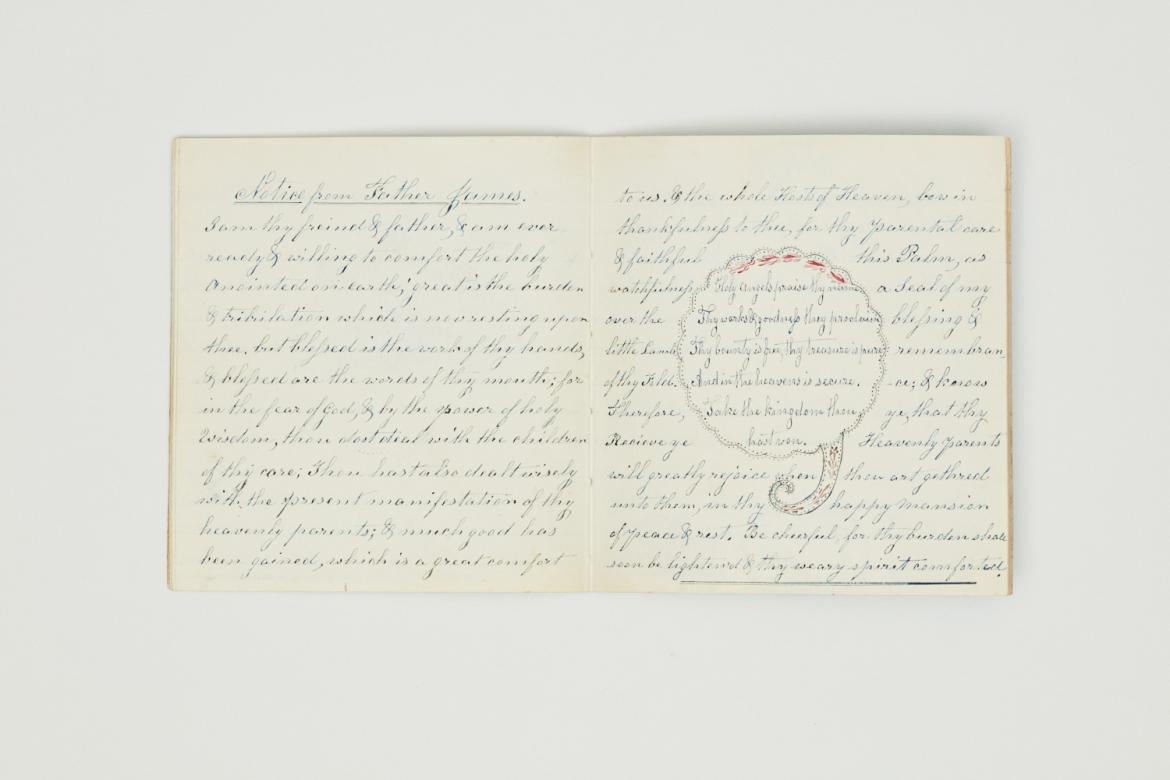 Notice from Father James.
I am thy freind & father, & am ever
ready & willing to comfort the holy
Anointed on earth; great is the burden
& tribilation which is now resting upon
thee, but blessed is the work of thy hands,
& blessed are the words of thy mouth; for
in the fear of God, & by the power of holy
Wisdom, thou dost deal with the children
of thy care; Thou hast also dealt wisely
with the present manifestation of thy
heavenly parents; & much good has
been gained, which is a great comfort
to us. & the whole Hosts of Heaven, bow in
thankfulness to thee, for thy parental care
& faithful
watchfulness
over the
little Lambs
of thy Fold.
Therefore,
Recieve ye
this Palm, as
a Seal of my
blessing &
remembran
-ce; & know
ye, that thy
Heavenly Parents
Holy Angels praise thy name
Thy works & goodness they proclaim
Thy bounty is free, thy treasure is pure
And in the heavens is secure.
Take the kingdom thou
hast won.
will greatly rejoice when thou art gethred
unto them, in thy happy mansion
of peace & rest. Be cheerful, for thy burden shall
soon be lightened & thy weary spirit comforted.